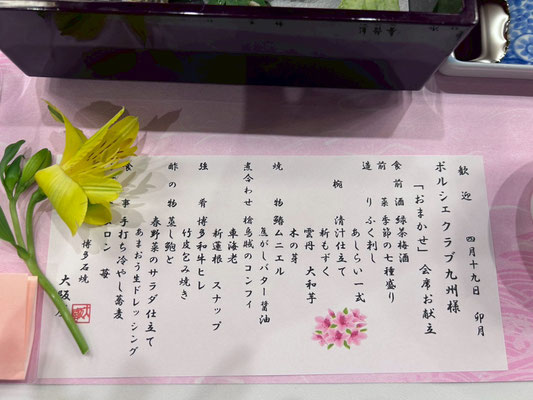 歓迎　四月十九日　卯月
ポルシェクラブ九州様
「おまかせ」会席お献立
食前酒 緑茶梅酒
前菜 季節の七種盛り
造り ふく刺し
あしらい一式
椀 清汁仕立て
新もずく
雲丹 大和芋
木の芽
焼物 鰆ムニエル
焦がしバター醤油
煮合わせ 槍烏賊のコンフィ
車海老
新蓮根 スナップ
強肴 博多和牛ヒレ
竹皮包み焼き
酢の物 蒸し鮑と
春野菜のサラダ仕立て
あまおう生ドレッシング
食事 手打ち冷やし蕎麦
ロン 苺
博多石焼
大阪